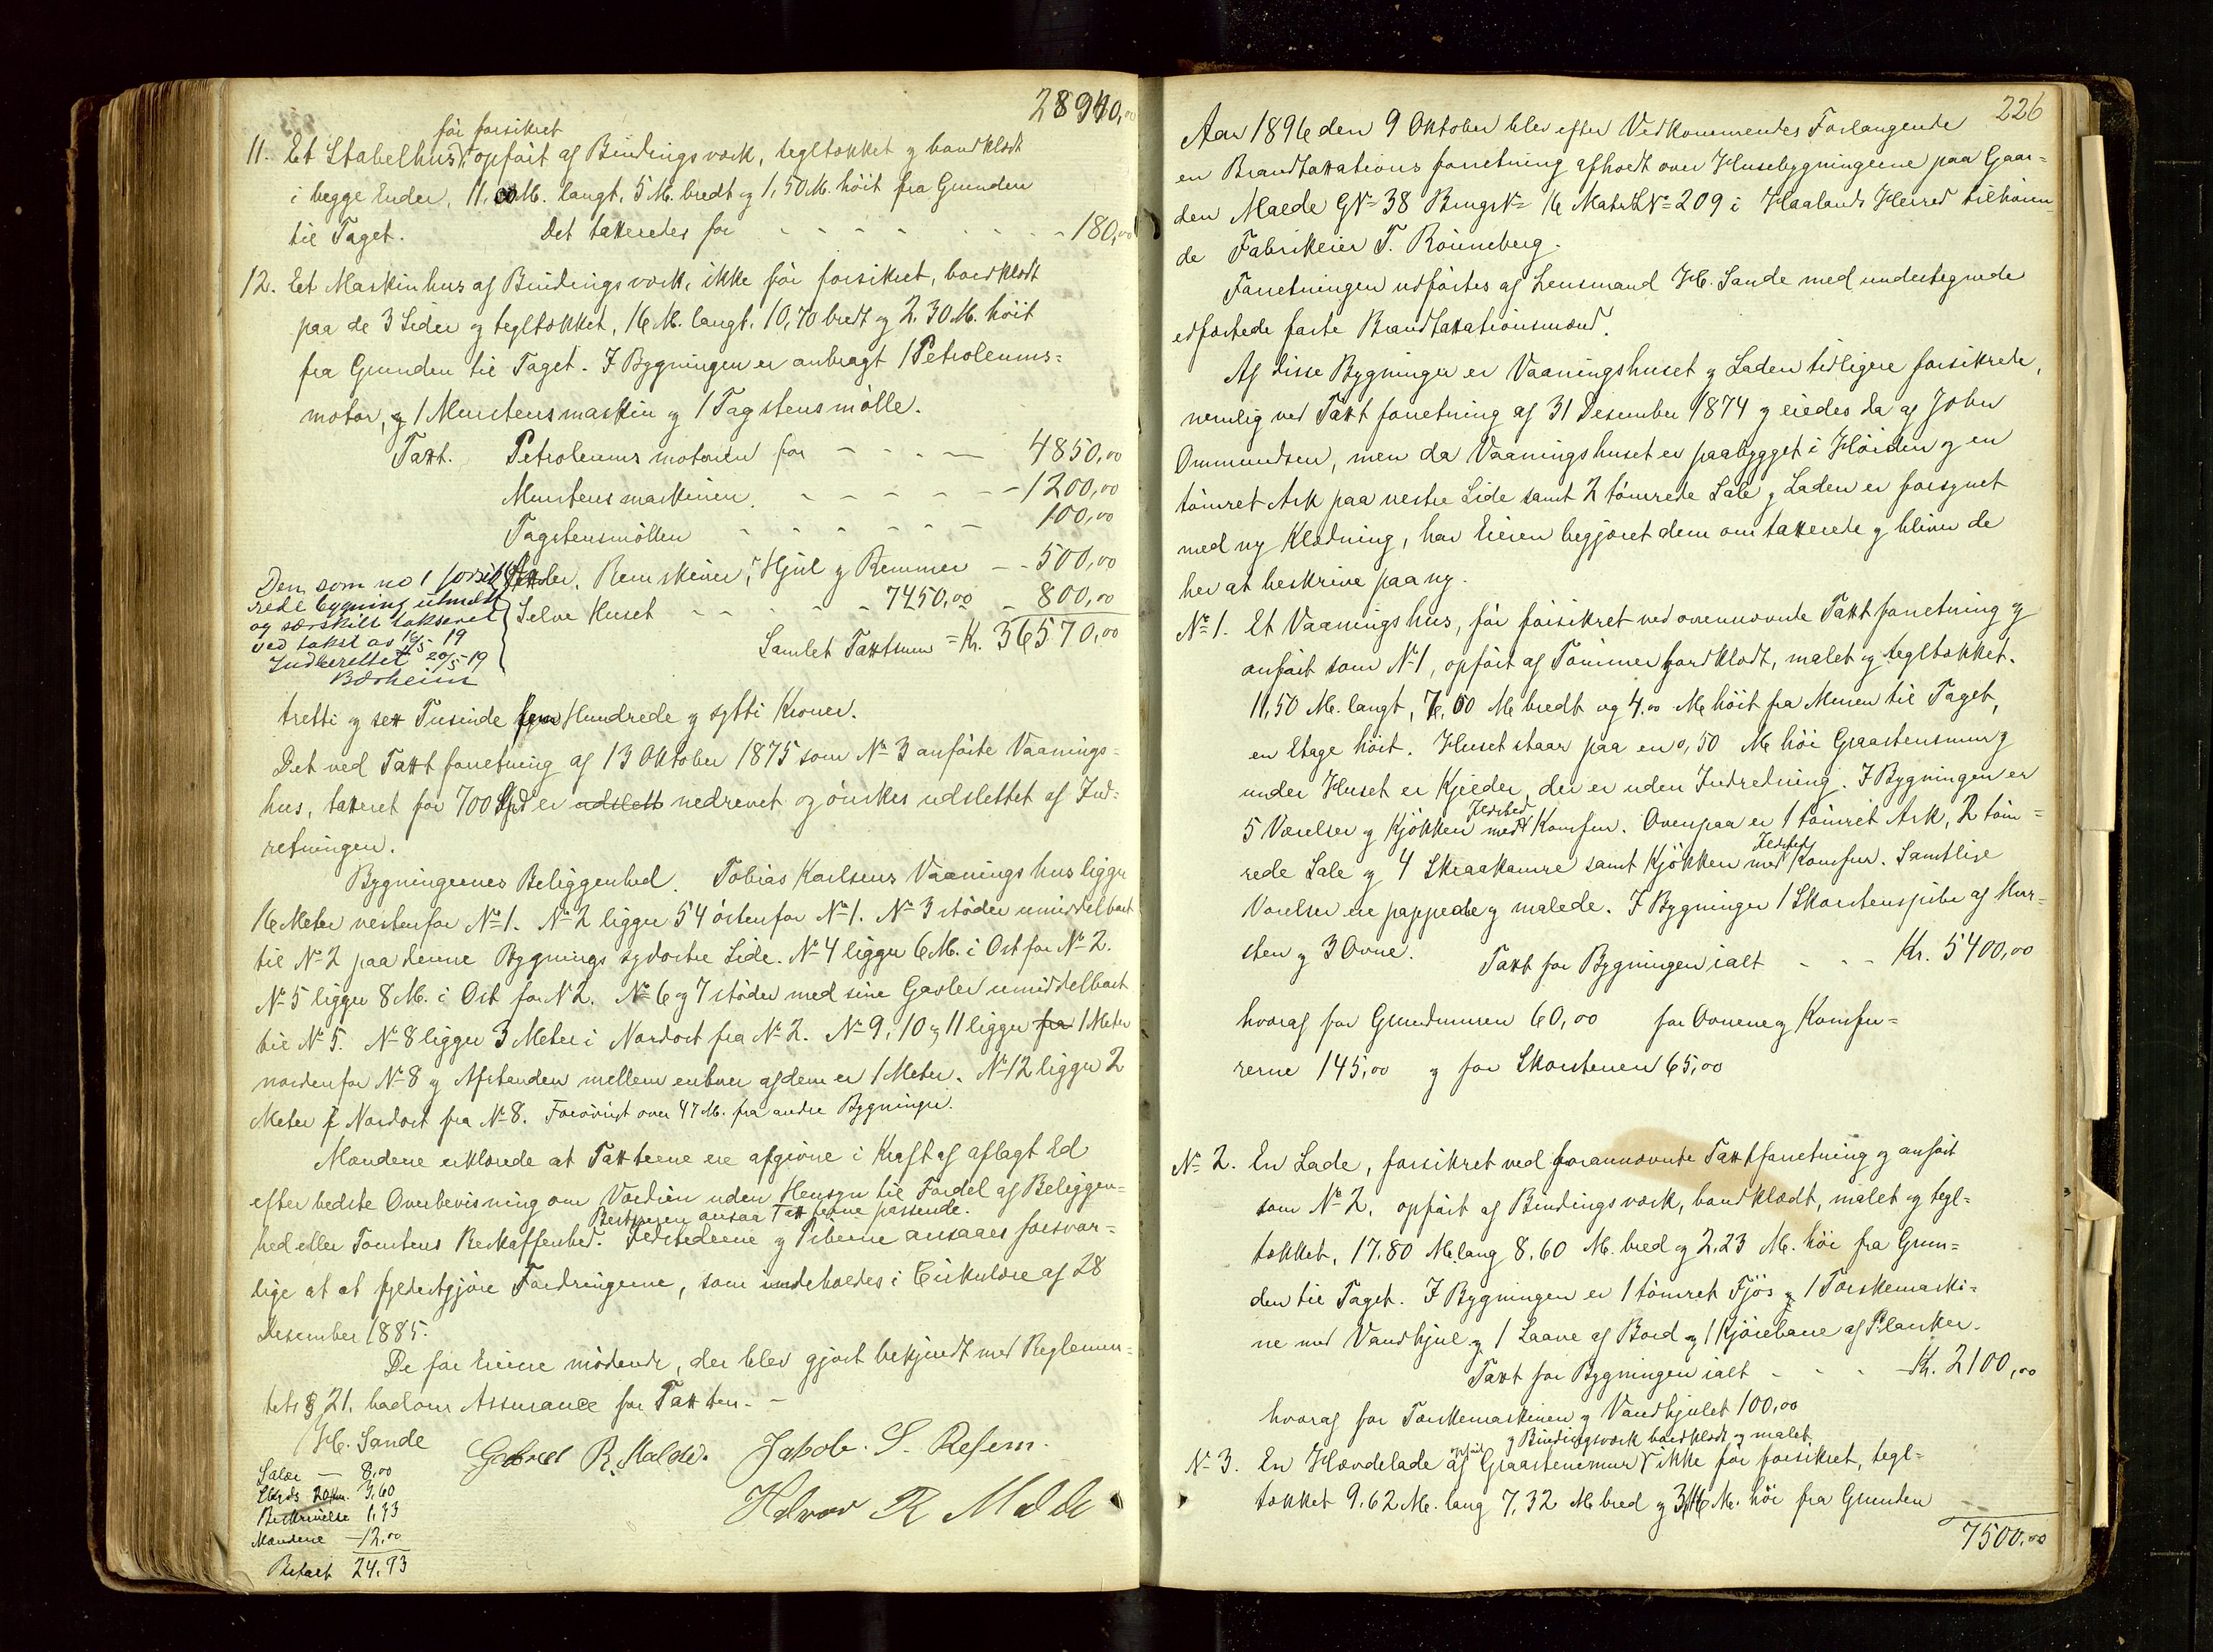 28940,00
før forsikret
11. Et Stabelhus, opført af Bindingsværk, tegltækket og bordklædt
i begge Ender, 11,00 M. langt, 5 M. bredt og 1,50 M. høit fra Grunden
til Taget. Det taxeredes for - - - - - - - 180,00
12. Et Maskinhus af Bindingsværk, ikke før forsikret, bordklædt
paa de 3 Sider og tegltækket, 16 M. langt, 10,70 bredt og 2,30 M. høit
fra Grunden til Taget. I Bygningen er anbragt 1 Petroleums=
motor, 1 Murstensmaskin og 1 Tagstensmølle.
Taxt. Petroleumsmotoren for - - - - 4850,00
Murstensmaskinen - - - - - - 1200,00
Tagstensmøllen - - - - - - 100,00
Axler, Remskiver, Hjul og Remmer - - 500,00
Selve Huset - - - - - 7450,00 - 800,00
Den som no 1 forsik
rede bygning utmeldt
og særskilt taksert
ved takst av 16/5-19
Indberettet 20/5-19
Bærheim
Samlet Taxtsum = Kr. 36570,00
tretti og sex Tusinde fem Hundrede og sytti Kroner.
Det ved Taxtforretning af 13 Oktober 1875 som No 3 anførte Vaanings=
hus, taxeret for 700 Spd er udslett nedrevet og ønskes udslettet af Ind=
retningen.
Bygningernes Beliggenhed. Tobias Karlsens Vaaningshus ligger
16 Meter vestenfor No 1. No 2 ligger 54 østenfor No 1. No 3 støder umiddelbart
til No 2 paa denne Bygnings sydostre Side. No 4 ligger 6 M. i Ost for No 2.
No 5 ligger 8 M. i Ost for N 2. No 6 og 7 støder med sine Gavler umiddelbart
til No 5. No 8 ligger 3 Meter i Nordost fra No 2. No 9, 10 og 11 ligger fra 1 Meter
nordenfor No 8 og Afstanden mellem enhver af dem er 1 Meter. No 12 ligger 2
Meter i Nordost fra No 8. Forøvrigt over 47 M. fra andre Bygninger.
Mændene erklærede at Taxterne ere afgivne i Kraft af aflagt Ed
efter bedste Overbevisning om Værdien uden Hensyn til Fordel af Beliggen=
Bestyreren ansaa Taxterne passende.
hed eller Tomtens Beskaffenhed. Ildstederne og Piberne ansaaes forsvar=
lige at at fyldestgjøre Fordringerne, som indeholdes i Cirkulære af 28
Desember 1885.
De for Eierne mødende, der blev gjort bekjendt med Reglemen=
tets § 21, bad om Assurance for Taxten. -
H. Sande Gabriel R. Malde. Jakob. S. Refsem.
Halvor R Malde
Salær - 8,00
Skyds 20 km. 3,60
Beskrivelse 1,33
Mændene - 12,00
Betalt 24,93
226
Aar 1896 den 9 Oktober blev efter Vedkommendes Forlangende
en Brandtaxationsforretning afholdt over Husebygningerne paa Gaar=
den Malde GNo 38 BrugsNo 16 MatrLNo 209 i Haalands Herred tilhøren=
de Fabrikeier T. Rønneberg.
Forretningen udførtes af Lensmand H. Sande med undertegnede
edfæstede faste Brandtaxationsmænd.
Af disse Bygninger er Vaaningshuset og Laden tidligere forsikrede,
nemlig ved Taxtforretning af 31 Desember 1874 og eiedes da af John
Ommundsen, men da Vaaningshuset er paabygget i Høiden og en
tømret Ark paa vestre Side samt 2 tømrede Sale og Laden er forsynet
med ny Klædning, har Eieren begjæret dem omtaxerede og bliver de
her at beskrive paa ny.
No 1. Et Vaaningshus, før forsikret ved ovennævnte Taxtforretning og
anført som No 1, opført af Tømmer bordklædt, malet og tegltækket.
11,50 M. langt, 7,00 M bredt og 4,00 M høit fra Muren til Taget,
en Etage høit. Huset staar paa en 0,50 M høi Graastensmur og
under Huset er Kjelder, der er uden Indretning. I Bygningen er
Ildsted
5 Værelser og Kjøkken med Komfur. Ovenpaa er 1 tømret Ark, 2 tøm=
Ildsted
rede Sale og 4 Skraakamre samt Kjøkken med Komfur. Samtlige
Værelser ere pappede og malede. I Bygningen 1 Skorstenspibe af Mur=
sten og 3 Ovne. Taxt for Bygningen ialt - - - Kr. 5400,00
hvoraf for Grundmuren 60,00 for Ovnene og Komfu=
rerne 145,00 og for Skorstenen 65,00
No 2. En Lade, forsikret ved forannævnte Taxtforretning og anført
som No 2, opført af Bindingsværk, bordklædt, malet og tegl=
tækket, 17,80 M lang 8,60 M. bred og 2,23 M. høi fra Grun=
den til Taget. I Bygningen er 1 tømret Fjøs og 1 Tærskemaski=
ne med Vandhjul og 1 Laave af Bord og 1 Kjørebane af Planker.
Taxt for Bygningen ialt - - - Kr. 2100,00
hvoraf for Tærskemaskinen og Vandhjulet 100,00
opført og Bindingsværk bordklædt og malet
No 3. En Høndelade af Graastensmur ikke før forsikret, tegl=
tækket 9,62 M. lang 7,32 M bred og 3,16 M. høi fra Grunden
7500,00